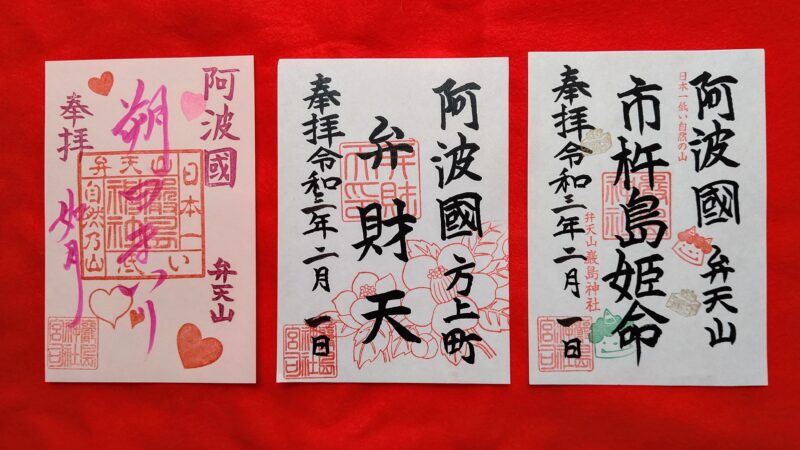 阿波國
弁天山
朔日まいり
弁天山
日本一低い
嚴島神社
自然乃山
奉拝
如月
嚴島神社宮司
阿波國 方上町
弁財天
弁財
奉拝 令和三年二月一日
嚴島神社宮司
阿波國 弁天山
日本一低い自然の山
市杵島姫命
嚴島神社
弁天山嚴島神社
奉拝 令和三年二月一日
嚴島神社宮司